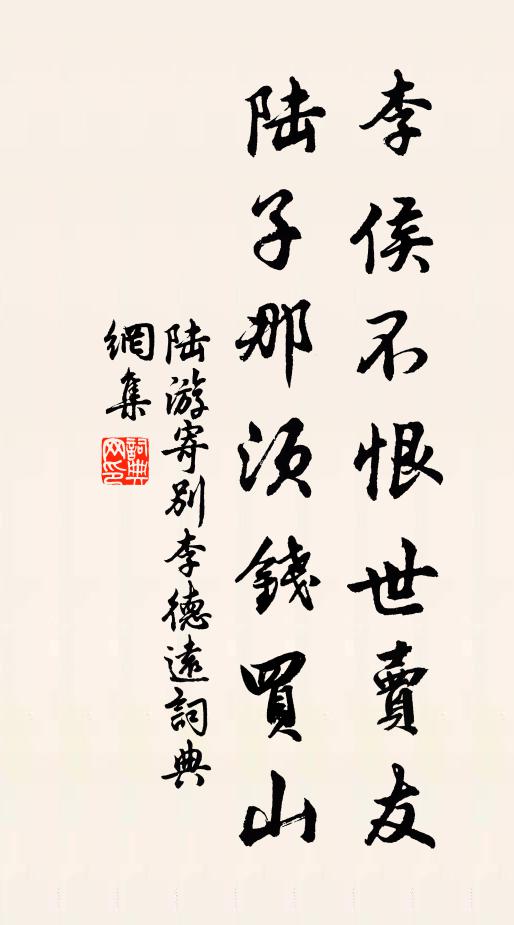 李侯不恨世賣友
陸子那須錢買山
陸游寄別李德遠詞典
網集
詞典網印